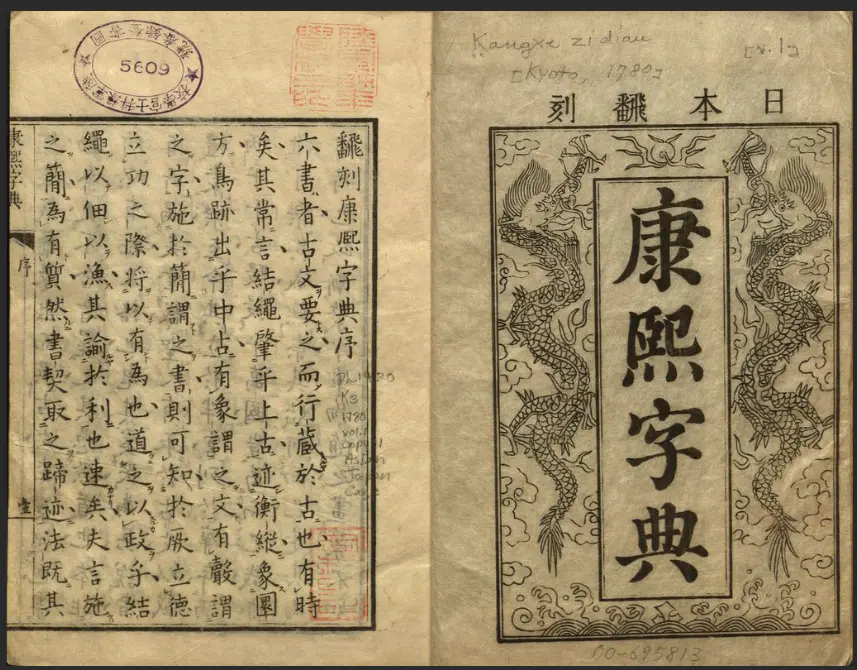 Kangxi zidian
[v.1]
[Kyoto, 1780]
日本飜刻
康熙字典
00-695813
飜刻康熙字典序
六書者古文要之而行藏於古也有時
矣其常言結繩肇乎上古迹衡縱象圜
方鳥跡出乎中古有象謂之文有聲謂
之字施於簡謂之書則可知於厥立德
立功之際將以有為也道之以政乎結
繩以佃以漁其諭於利也速矣夫言施
之簡為有質然書契取之蹄迹法既其
康熙字典
序
壹
PL1420
K3
1780
vol.1
copy 1
Asian
Japan
Case
5609